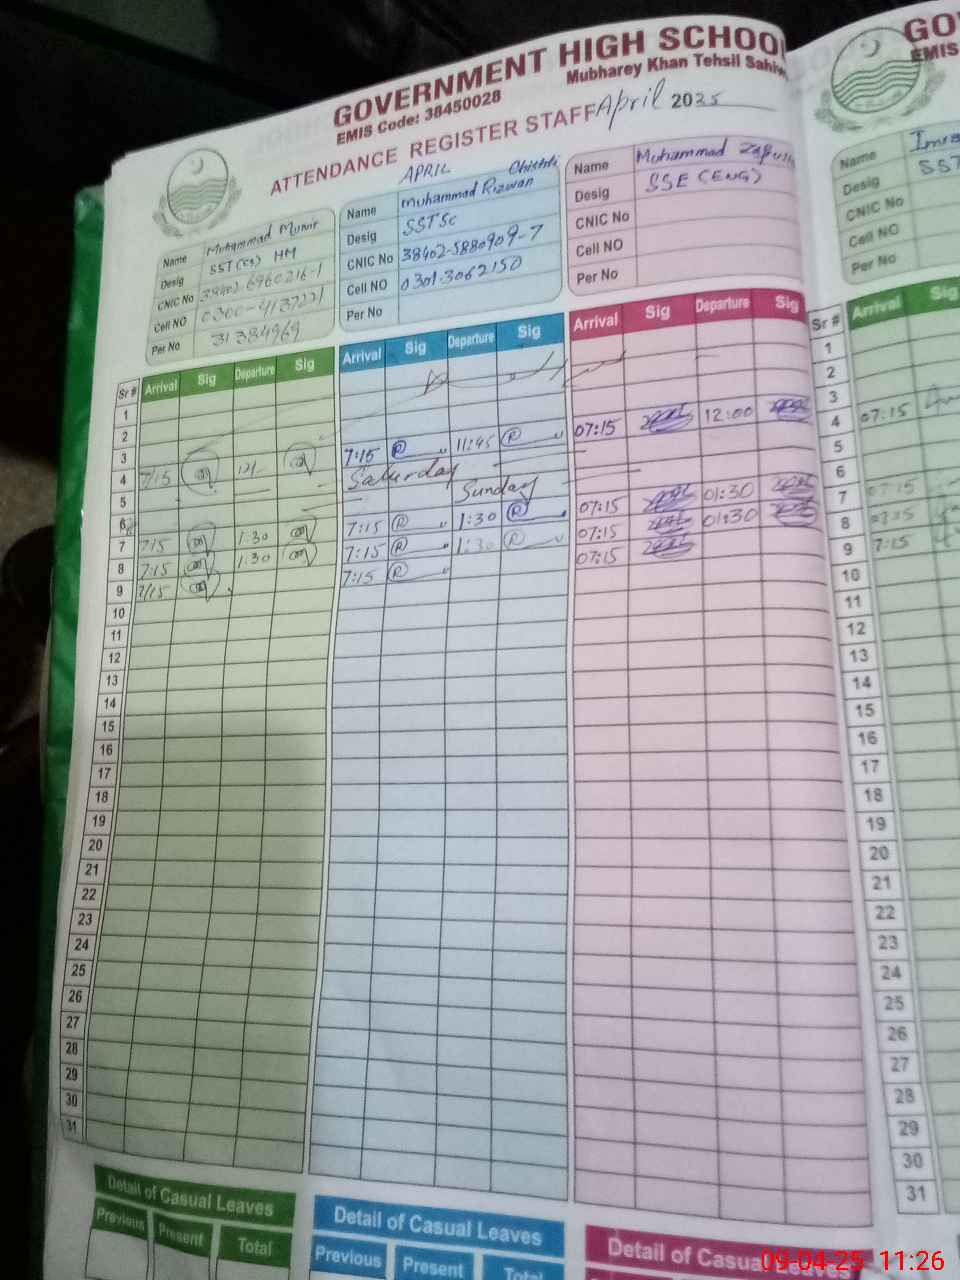 GOVERNMENT HIGH SCHOOL
Mubharey Khan Tehsil
EMIS Code: 38450028
ATTENDANCE REGISTER STAFF April 2025
APRIL
Name Muhammad Munir
Desig SST(CS) HM
CNIC No 38402-6960216-1
Cell NO 0300-4137221
Per No 31384969
Chishti
Name Muhammad Rizwan
Desig SSTSc
CNIC No 38402-5880909-7
Cell NO 0301-3062150
Per No
Name Muhammad
Desig SSE (ENG)
CNIC No
Cell NO
Per No
Name
Desig SST
CNIC No
Cell NO
Per No
Sr # Arrival Sig Departure Sig Arrival Sig Departure Sig Arrival Sig Departure Sig Sr # Arrival Sig
1 1
2 2
3 3
4 7/15 7:15 R 11:45 R 07:15 12:00 4 07:15
5 Saturday 5
6 Sunday 6
7 7/15 1:30 7:15 R 1:30 R 07:15 01:30 7 07:15
8 7:15 1:30 7:15 R 1:30 R 07:15 01:30 8 07:15
9 7/15 7:15 R 07:15 9 7:15
10 10
11 11
12 12
13 13
14 14
15 15
16 16
17 17
18 18
19 19
20 20
21 21
22 22
23 23
24 24
25 25
26 26
27 27
28 28
29 29
30 30
31 31
Detail of Casual Leaves
Previous Present Total
Detail of Casual Leaves
Previous Present Total
Detail of
09-04-25 11:26